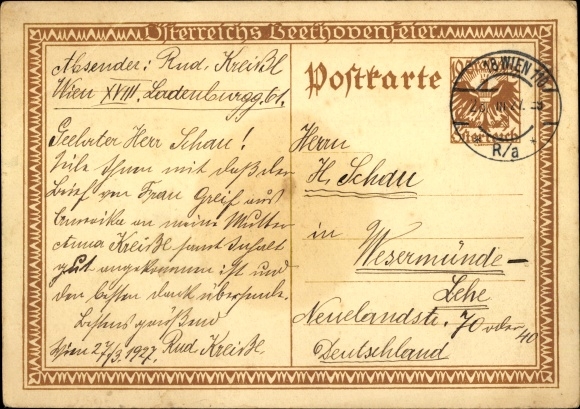 Österreichs Beethovenfeier
Absender: Rud. Kreißl
Wien XVIII. Ladenburgg. 61.
Geehrter Herr Schau!
Teile Ihnen mit daß der
Brief von Frau Greif aus
Amerika an meine Mutter
Anna Kreißl samt Inhalt
gut angekommen ist und
den besten Dank übersende.
Bestens grüßend
Wien 27/3. 1927. Rud Kreißl.
Postkarte
WIEN 110
R/a
Österreich
Herrn
H. Schau
in
Wesermünde-
Lehe
Neuelandstr. 70 oder 40
Deutschland